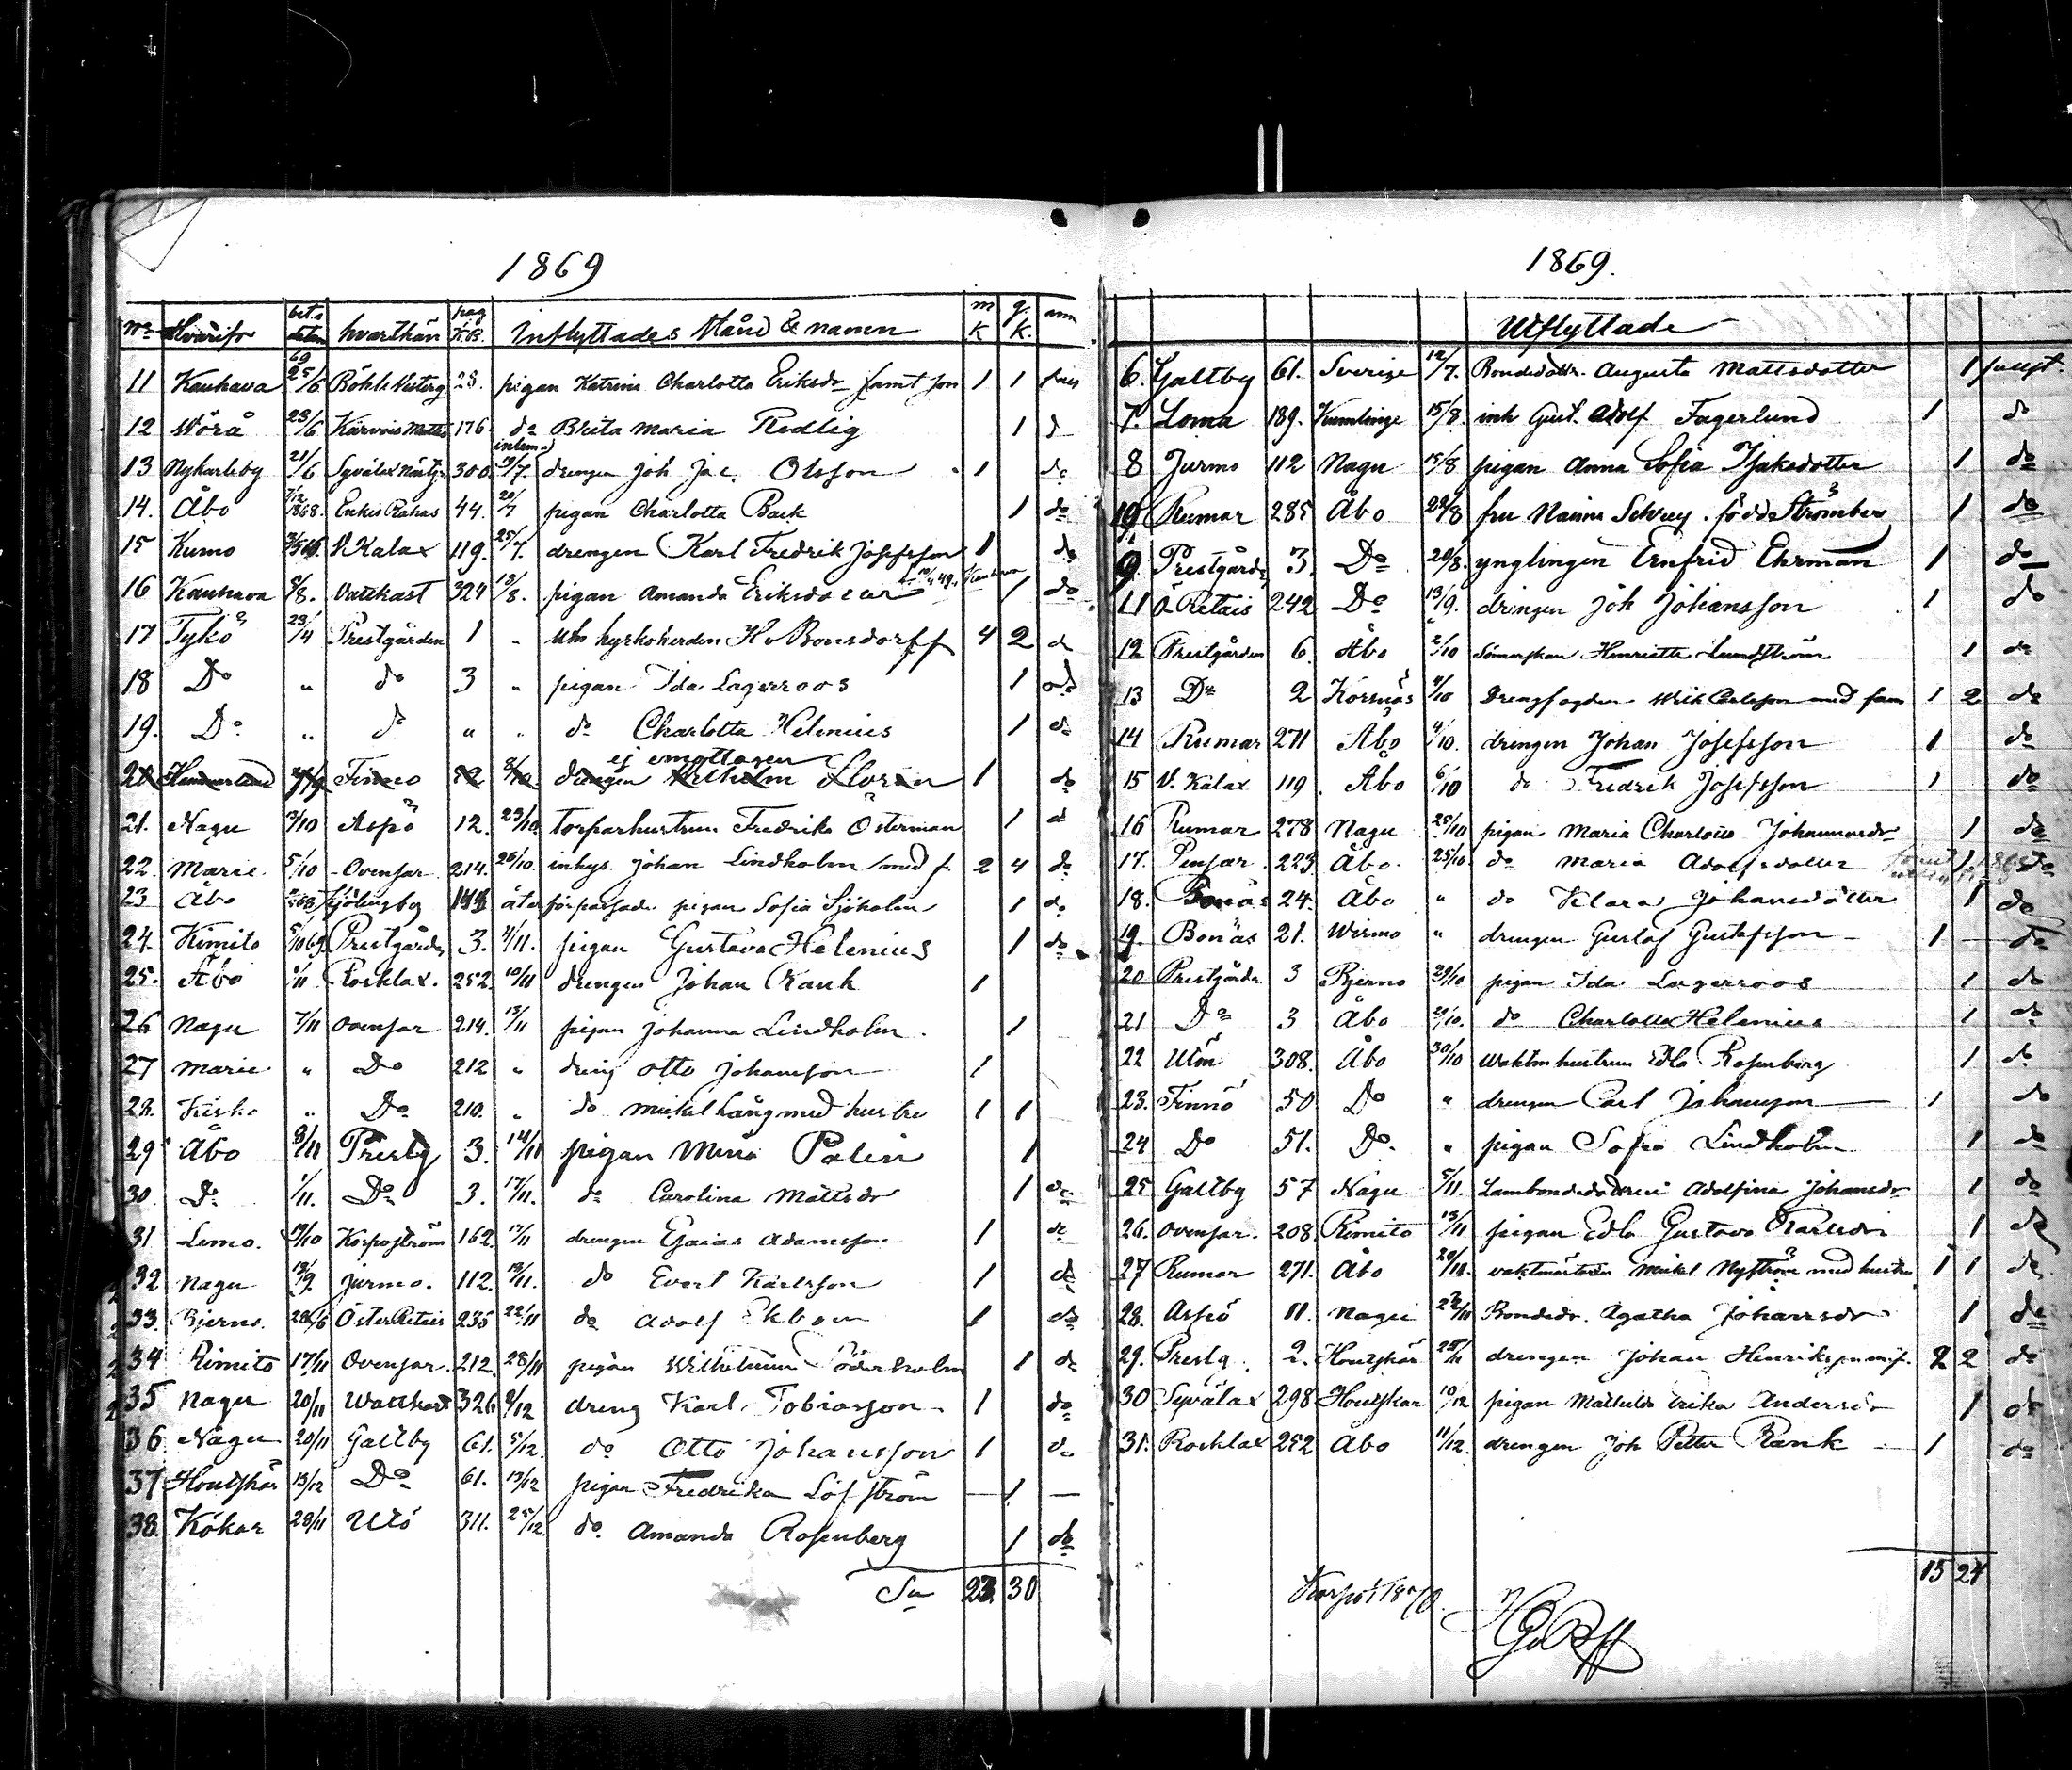 1869
No Hvarifr bet.s datum hvarthän pag K.B. Inflyttades Stånd & namn m k q. k. anm
11 Kauhava 69 25/6 Böhle Vesterg 28. pigan Katrina Charlotta Eriksdr samt son 1 1
12 Wörå 23/6 Kärvois Matts 176 do Brita Maria Redlig 1 d
13 Nykarleby 21/6 Syvälax 300. 19/7. drengen Joh Jac. Olsson 1 do
14. Åbo 7/12 1868. Enkis Rahas 44. 20/7 pigan Charlotta Back 1 do
15 Kumo V. Kalax 119. 25/7. drengen Karl Fredrik Josefsson 1 do
16 Kauhava 8/8. Vattkast 324 18/8. pigan Amanda Eriksdotter Kauhava 1 do
17 Tykö 23/4 Prestgården 1 " kyrkoherden H v Bonsdorff 4 2 d
18 Do " do 3 " pigan Ida Lagerroos 1 do
19. Do " do " " do Charlotta Helenius 1 do
ej emottagen
20 Hammarland Finno 52 drengen Wilhelm Florin 1 do
21. Nagu 13/10 Aspö 12. 23/10. torparhustrun Fredrika Österman 1 d
22. Marie 5/10 Ovensar 214. 26/10. inhys. Johan Lindholm med f. 2 4 do
23 Åbo återförpassade pigan Sofia Sjöholm 1 do
24. Kimito Prestgården 3. 4/11. pigan Gustava Helenius 1 do
25. Åbo 1/11 Rosklax. 252. 10/11 drengen Johan Rank 1
26 Nagu 7/11 Ovensar 214. 13/11 pigan Johanna Lindholm. 1
27 Marie " Do 212 " dreng Otto Johansson 1
28. Kisko " Do 210. " do Mickel Lång med hustru 1 1
29 Åbo 8/11 Prestg 3. 14/11 pigan Mina Palin 1
30. Do 1/11. Do 3. 17/11. do Carolina Mattsdr 1 do
31 Lemo. 19/10 Korpoström 162. 17/11 drengen Esaias Adamsson 1 do
32 Nagu Jurmo. 112. 19/11. do Evert Karlsson 1 do
33. Bjerno. Öster Retais 235 22/11 do Adolf Ekbom 1 do
34 Kimito 17/11 Ovensar 212. 28/11 pigan Wilhelmina Söderholm 1 do
35 Nagu 20/11 Wattkast 326 4/12 dreng Karl Tobiasson 1 do
36 Nagu 20/11 Galtby 61. 5/12. do Otto Johansson 1 do
37 Houtskär 13/12 Do 61. 13/12 pigan Fredrika Löfström 1 —
38. Kökar 28/11 Utö 311. 25/12. do Amanda Rosenberg 1 do
Sa 23 30
1869.
Utflyttade
6. Galtby 61. Sverige 12/7. Bondedottr. Augusta Mattsdotter 1
7. Loma 189. Kumlinge 15/8. inh Gust. Adolf Fagerlund 1 do
8 Jurmo 112 Nagu 15/8 pigan Anna Sofia Isaksdotter 1 do
10 Rumar 285 Åbo 29/8 fru Naima född Strömberg 1 do
9. Prestgården 3. Do 20/8. ynglingen Ernfrid Ehrman 1 do
11 Ö Retais 242 Do 13/9. drengen Joh Johansson 1 do
12 Prestgården 6. Åbo 2/10 Sömerskan Henrietta Lundström 1 do
13 Do 2 Korsnäs 4/10 Drengfogden Wilh Carlsson med fam 1 2 do
14 Rumar 271 Åbo 4/10. drengen Johan Josefsson 1 do
15 V. Kalax 119 Åbo 6/10 do Fredrik Josefsson 1 do
16 Rumar 278 Nagu 25/10 pigan Maria Charlotta Johannesdr 1 do
17. Pensar 223 Åbo 25/10 do Maria Adolfsdotter 1 do
18. Bonäs 24. Åbo " do Klara Johansdotter 1 do
19. Bonäs 21. Wirmo " drengen Gustaf Gustafsson 1 do
20 Prestgårdn 3 Bjerno 29/10 pigan Ida Lagerroos 1 do
21 Do 3 Åbo 29/10. do Charlotta Helenius 1 do
22 Utön 308. Åbo 30/10 Waktm hustrun Edla Rosenberg 1 do
23. Finnö 50 Do " drengen Carl Johansson 1 do
24 Do 51. Do. " pigan Sofia Lindholm 1 do
25 Galtby 57 Nagu 5/11. Adolfina Johansdr 1 do
26. Ovensar. 208 Kimito 15/11 pigan Edla Gustava Karlsdr 1 do
27 Rumar 271. Åbo vaktmästaren Mickel Nyström med hustru 1 1 do
28. Aspö 11. Nagu Bondedr. Agatha Johansdr 1 do
29. Prestg. 2. Houtskär drengen Johan Henriksson m. f. 2 2 do
30 Syvälax 298 Houtskär 10/12 pigan Mathilda Erika Andersdr 1 do
31. Rosklax 252 Åbo 11/12. drengen Joh Petter Rank 1 do
15 24
Korpo